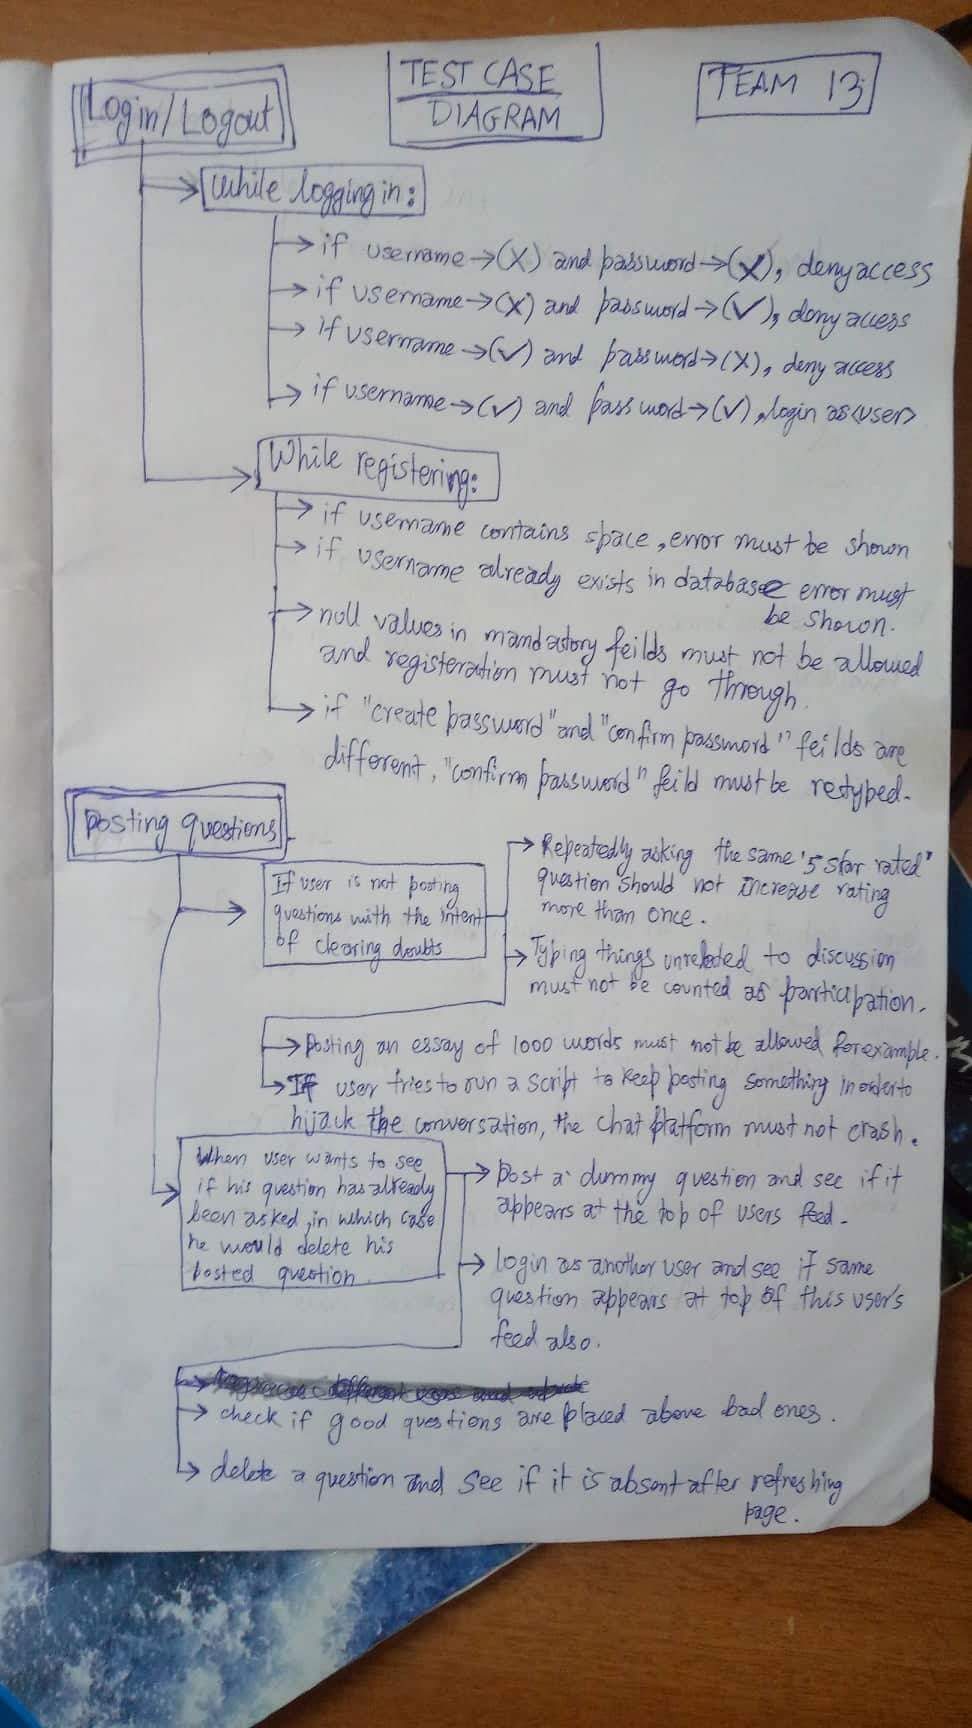 Login/Logout
TEST CASE
DIAGRAM
TEAM 13
While logging in:
→ if username→(X) and password→(X), deny access
→ if username→(X) and password→(✓), deny access
→ if username→(✓) and password→(X), deny access
→ if username→(✓) and password→(✓), login as <user>
While registering:
→ if username contains space, error must be shown
→ if username already exists in database error must
be shown.
→ null values in mandatory feilds must not be allowed
and registeration must not go through.
→ if "create password" and "confirm password" feilds are
different, "confirm password" feild must be retyped.
Posting questions
If user is not posting
questions with the intent
of clearing doubts
→ Repeatedly asking the same '5 star rated"
question should not increase rating
more than once.
→ Typing things unrelated to discussion
must not be counted as participation.
→ Posting an essay of 1000 words must not be allowed for example.
→ If user tries to run a script to keep posting something in order to
hijack the conversation, the chat platform must not crash.
When user wants to see
if his question has already
been asked, in which case
he would delete his
posted question.
→ post a dummy question and see if it
appears at the top of users feed.
→ login as another user and see if same
question appears at top of this user's
feed also.
→ check if good questions are placed above bad ones.
→ delete a question and see if it is absent after refreshing
page.